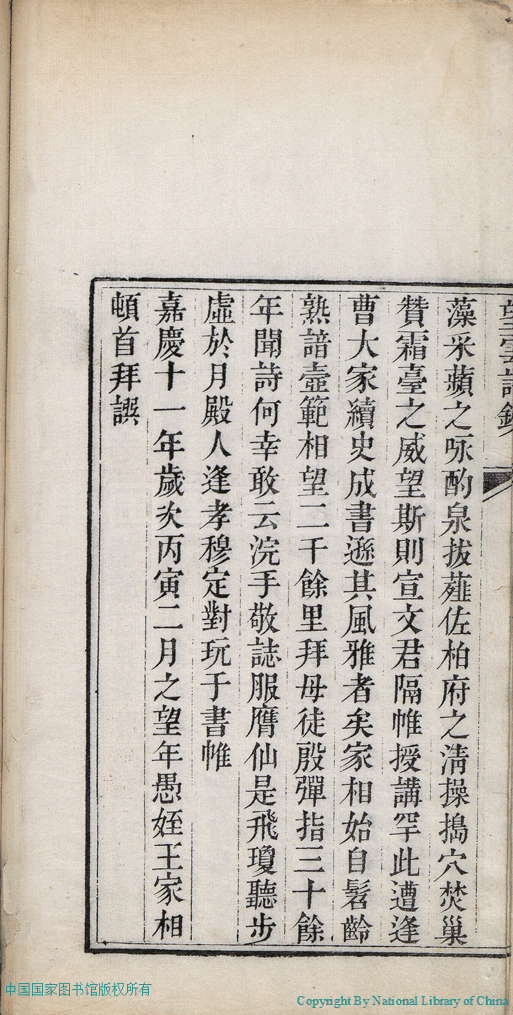 望雲詩鈔
藻采蘋之咏酌泉拔薤佐柏府之清操搗穴焚巢
贊霜臺之威望斯則宣文君隔帷授講罕此遭逢
曹大家續史成書遜其風雅者矣家相始自髫齡
熟諳壼範相望二千餘里拜母徒殷彈指三十餘
年聞詩何幸敢云浣手敬誌服膺仙是飛瓊聽步
虛於月殿人逢孝穆定對玩于書帷
嘉慶十一年歲次丙寅二月之望年愚姪王家相
頓首拜譔
中国国家图书馆版权所有
Copyright By National Library of China